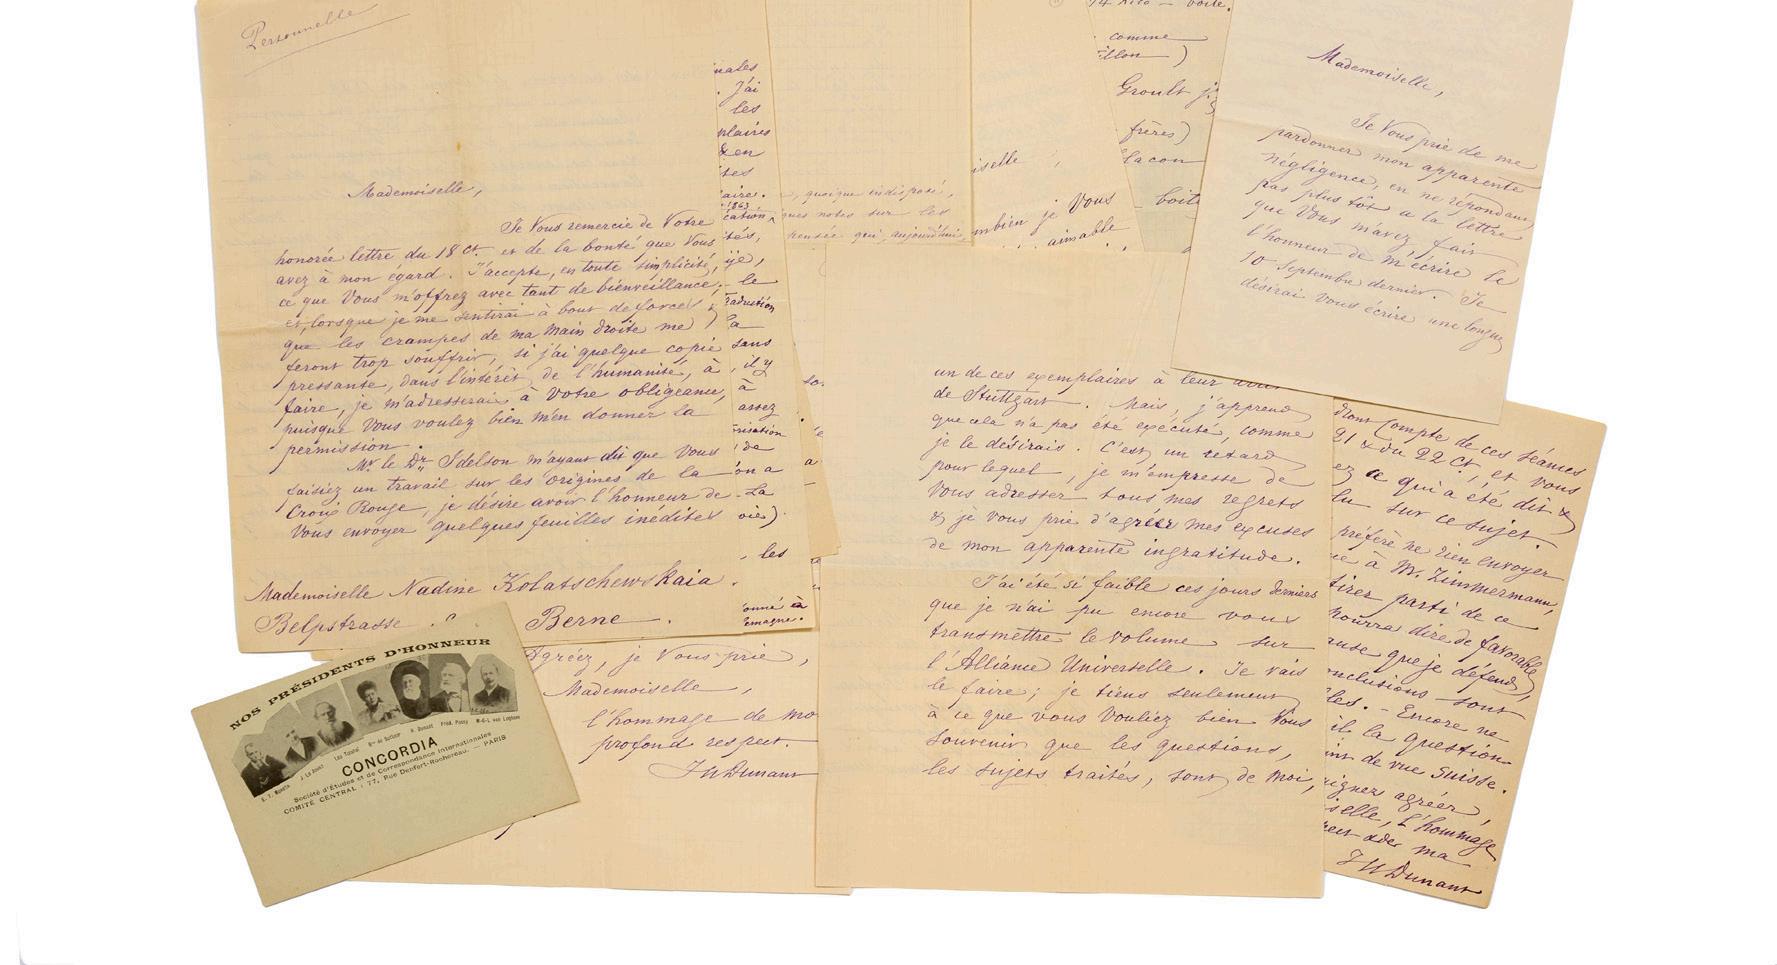 Personnelle
Mademoiselle,
Je Vous remercie de Votre
honorée lettre du 18 Ct. et de la bonté que Vous
avez à mon égard. J'accepte, en toute simplicité,
ce que Vous m'offrez avec tant de bienveillance;
et, lorsque je me sentirai à bout de forces &
que les crampes de ma main droite me
feront trop souffrir, si j'ai quelque copie
pressante, dans l'intérêt de l'humanité, à
faire, je m'adresserai à Votre obligeance,
puisque Vous voulez bien m'en donner la
permission.
Mr le Dr Idelson m'ayant dit que Vous
faisiez un travail sur les origines de la
Croix Rouge, je désire avoir l'honneur de
Vous envoyer quelques feuilles inédites
Mademoiselle Nadine Kolatschewskaia.
Belpstrasse Berne.
nales
J'ai
les
plaires
& en
tes
aire.
1863
cation,
tés,
le
traduction
la
sans
il y
à
assez
risation
de
on a
La
oie).
les
onné à
emagne.
quoique indisposé,
ques notes sur les
pensée qui, aujourd'hui,
iselle
mbien je Vous
aimable
voile.
comme
illon)
Groult
frères)
flacon
boite
Mademoiselle,
Je Vous prie de me
pardonner mon apparente
négligence, en ne répondant
pas plus tôt à la lettre
que Vous m'avez fait
l'honneur de m'écrire le
10 Septembre dernier. Je
désirai Vous écrire une longue
un de ces exemplaires à leur
de Stuttgart. Mais, j'apprend
que cela n'a pas été exécuté, comme
je le désirais. C'est un retard
pour lequel, je m'empresse de
Vous adresser tous mes regrets
& je vous prie d'agréer mes excuses
de mon apparente ingratitude.
J'ai été si faible ces jours derniers
que je n'ai pu encore vous
transmettre le volume sur
l'Alliance Universelle. Je vais
le faire; je tiens seulement
à ce que vous Vouliez bien Vous
souvenir que les questions,
les sujets traités, sont de moi,
dront compte de ces séances
21 & du 22 Ct, et vous
ez ce qui a été dit &
lu sur ce sujet.
préféré ne rien envoyer
à M. Zimmermann,
tirer parti de ce
pourra dire de favorable
ause que je défend,
nclusions sont
les. - Encore ne
il la question
int de vue Suisse.
aignez agréer,
iselle, l'hommage
ma
JHDunant
Agréez, je Vous prie,
Mademoiselle,
l'hommage de mo
profond respect.
JHDunant
NOS PRÉSIDENTS D'HONNEUR
E. T. Moneta
J. La Jeunez
Léo Tolstoï
Bne de Suttner
H. Dunant
Fréd. Passy
CONCORDIA
Société d'Études et de Correspondance Internationales
COMITÉ CENTRAL : 77, Rue Denfert-Rochereau. — PARIS